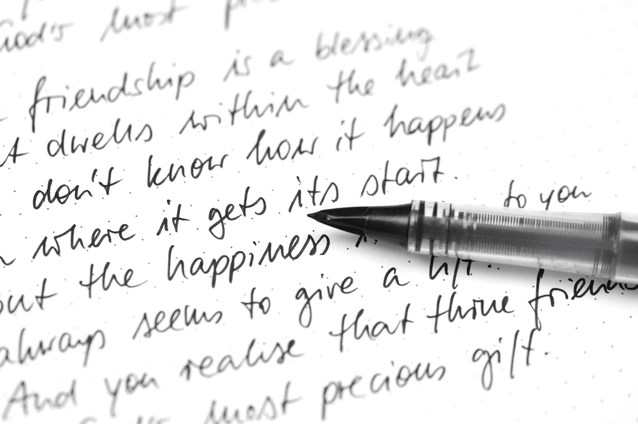 God's most
friendship is a blessing
dwells within the heart
don't know how it happens
where it gets its start.
to you
the happiness
always seems to give a lift.
And you realise that thine
most precious gift.